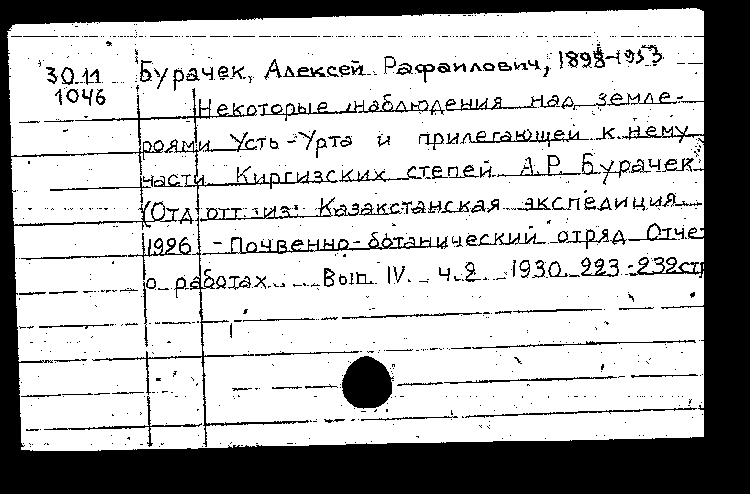 30.11
1046
Бурачек, Алексей Рафаилович, 1898-1953
Некоторые наблюдения над земле-
роями Усть-Урта и прилегающей к нему
части Киргизских степей А.Р. Бурачек
(Отд отт из: Казакстанская экспедиция
1926 - Почвенно-ботанический отряд Отчет
о работах. Вып. IV. ч.2 1930. 223-232стр